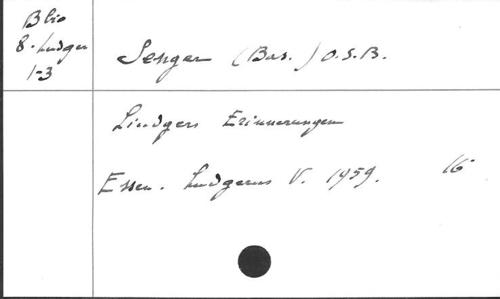 Blio
8. Ludger
1-3
Senger (Bas.) O.S.B.
Liudgers Erinnerungen
Essen. Ludgerus V. 1959. 16°